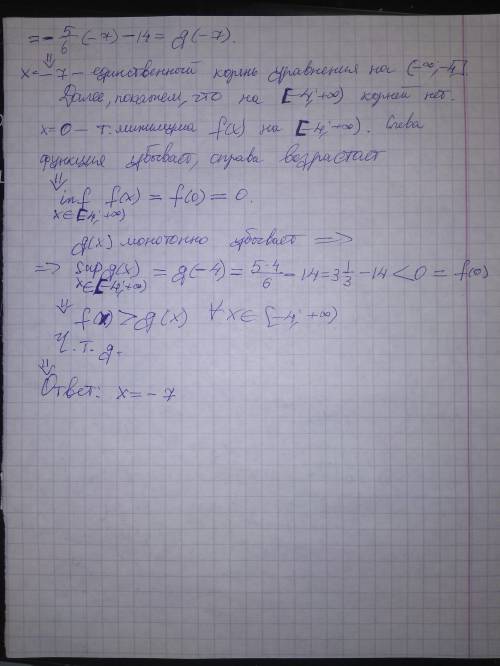 = - 5/6 (-7) - 14 = g(-7).
⇓
x = -7 - единственный корень уравнения на (-∞, -4].
Далее, покажем, что на [-4; +∞) корней нет.
x = 0 - т. минимума f(x) на [-4; +∞). Слева
функция убывает, справа возрастает
⇓
inf f(x) = f(0) = 0.
x∈[-4; +∞)
g(x) монотонно убывает ⇒
⇒ sup g(x) = g(-4) = 5·4/6 - 14 = 3 1/3 - 14 < 0 = f(0)
x∈[-4; +∞)
⇓ f(x) > g(x) ∀ x ∈ [-4; +∞)
Ч. т. д.
⇓
Ответ: x = -7